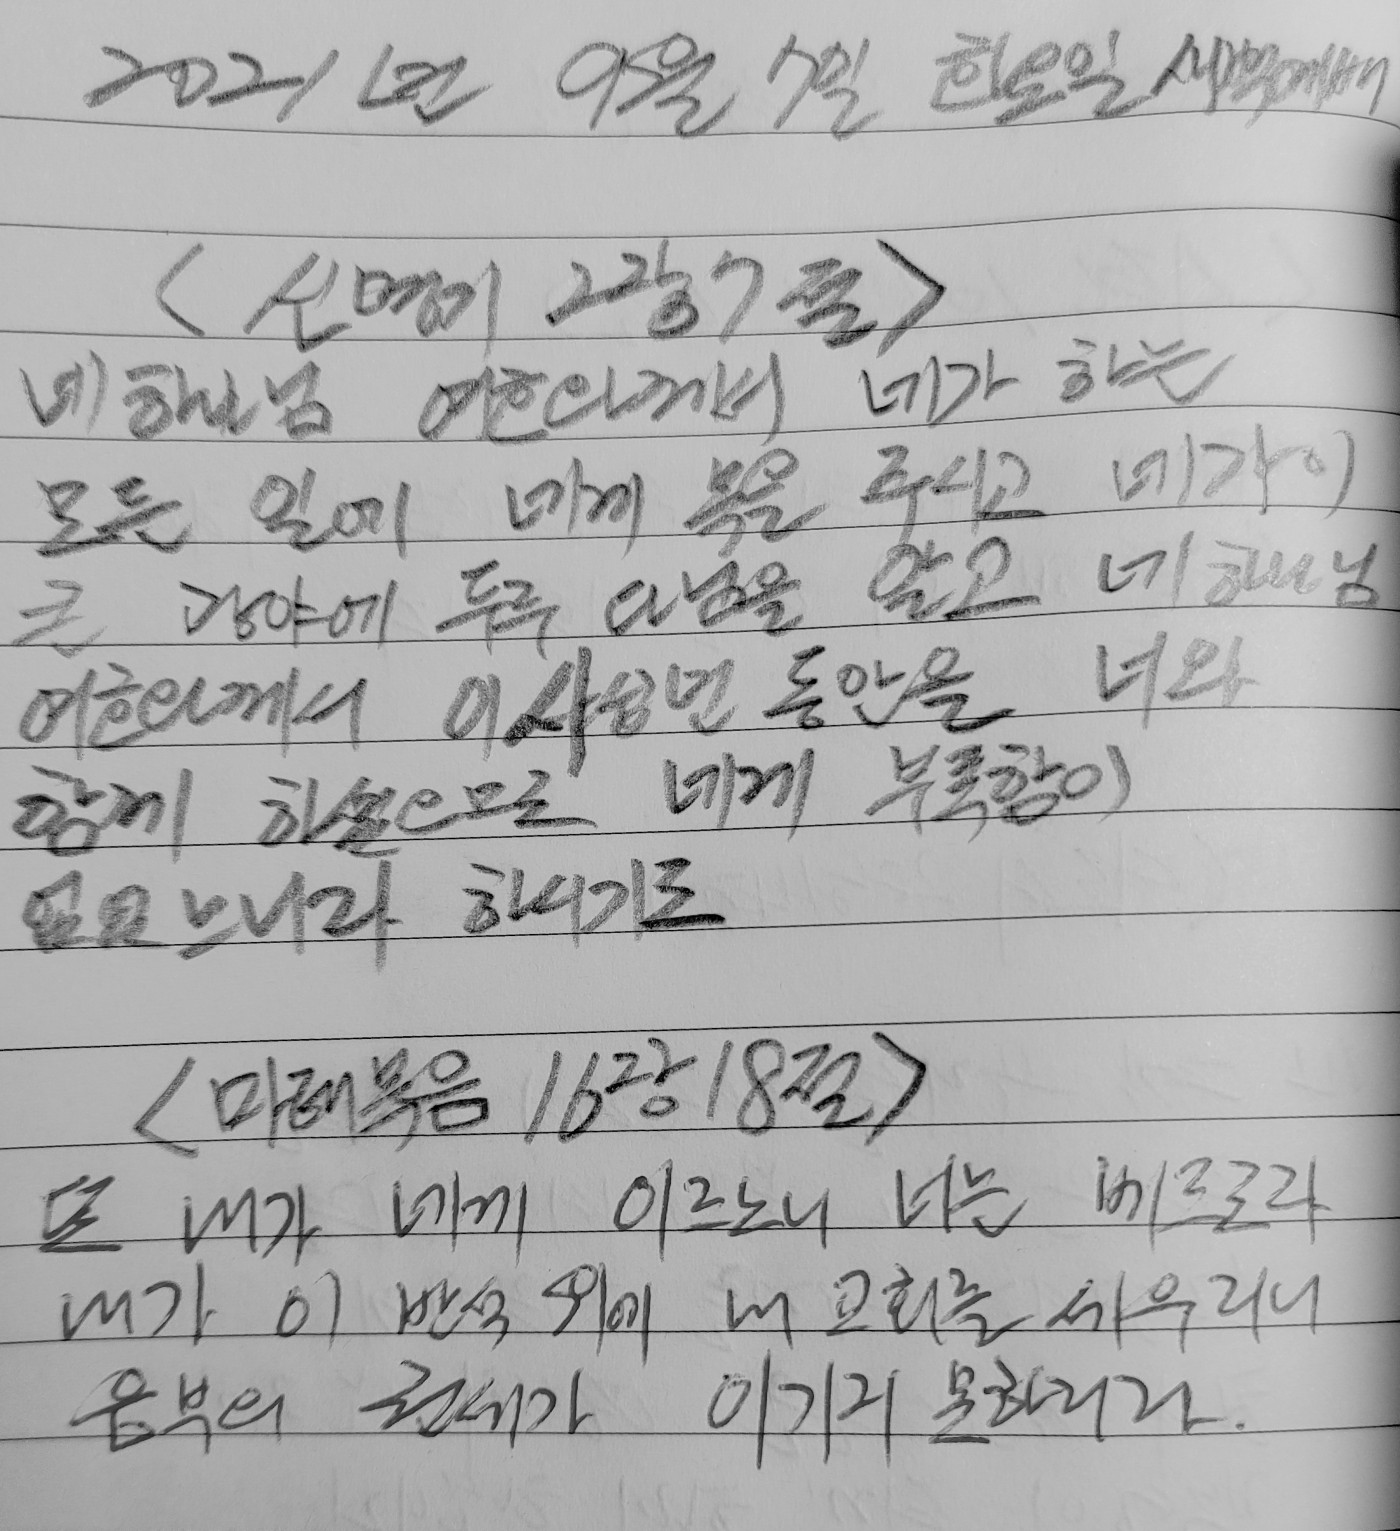 2021년 9월 7일 화요일 새벽예배
<신명기 2장 7절>
네 하나님 여호와께서 네가 하는
모든 일에 네게 복을 주시고 네가 이
큰 광야에 두루 다님을 알고 네 하나님
여호와께서 이 사십년 동안을 너와
함께 하셨으므로 네게 부족함이
없었느니라 하시기로
<마태복음 16장 18절>
또 내가 네게 이르노니 너는 베드로라
내가 이 반석 위에 내 교회를 세우리니
음부의 권세가 이기지 못하리라.